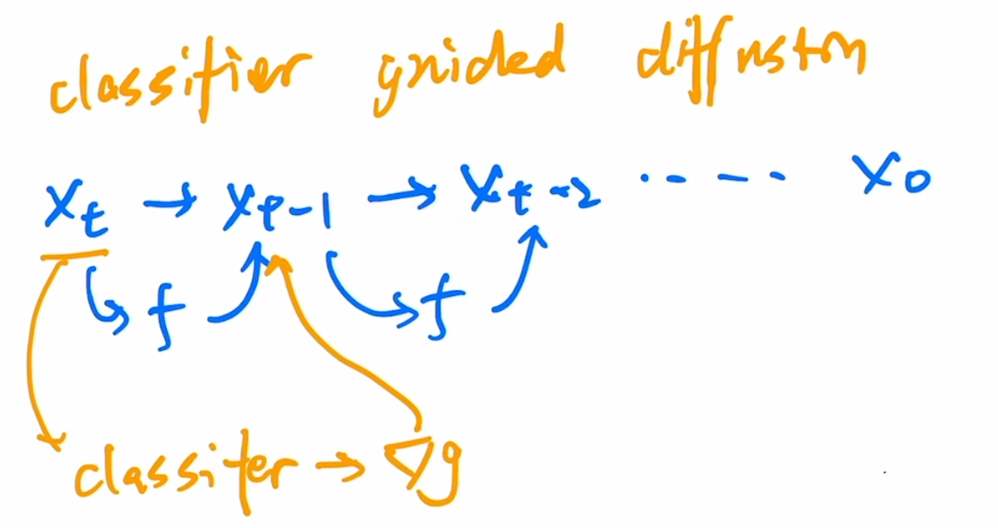 classifier guided diffusion
Xt → Xt-1 → Xt-2 ..---. X0
f f
classifer → ∇g